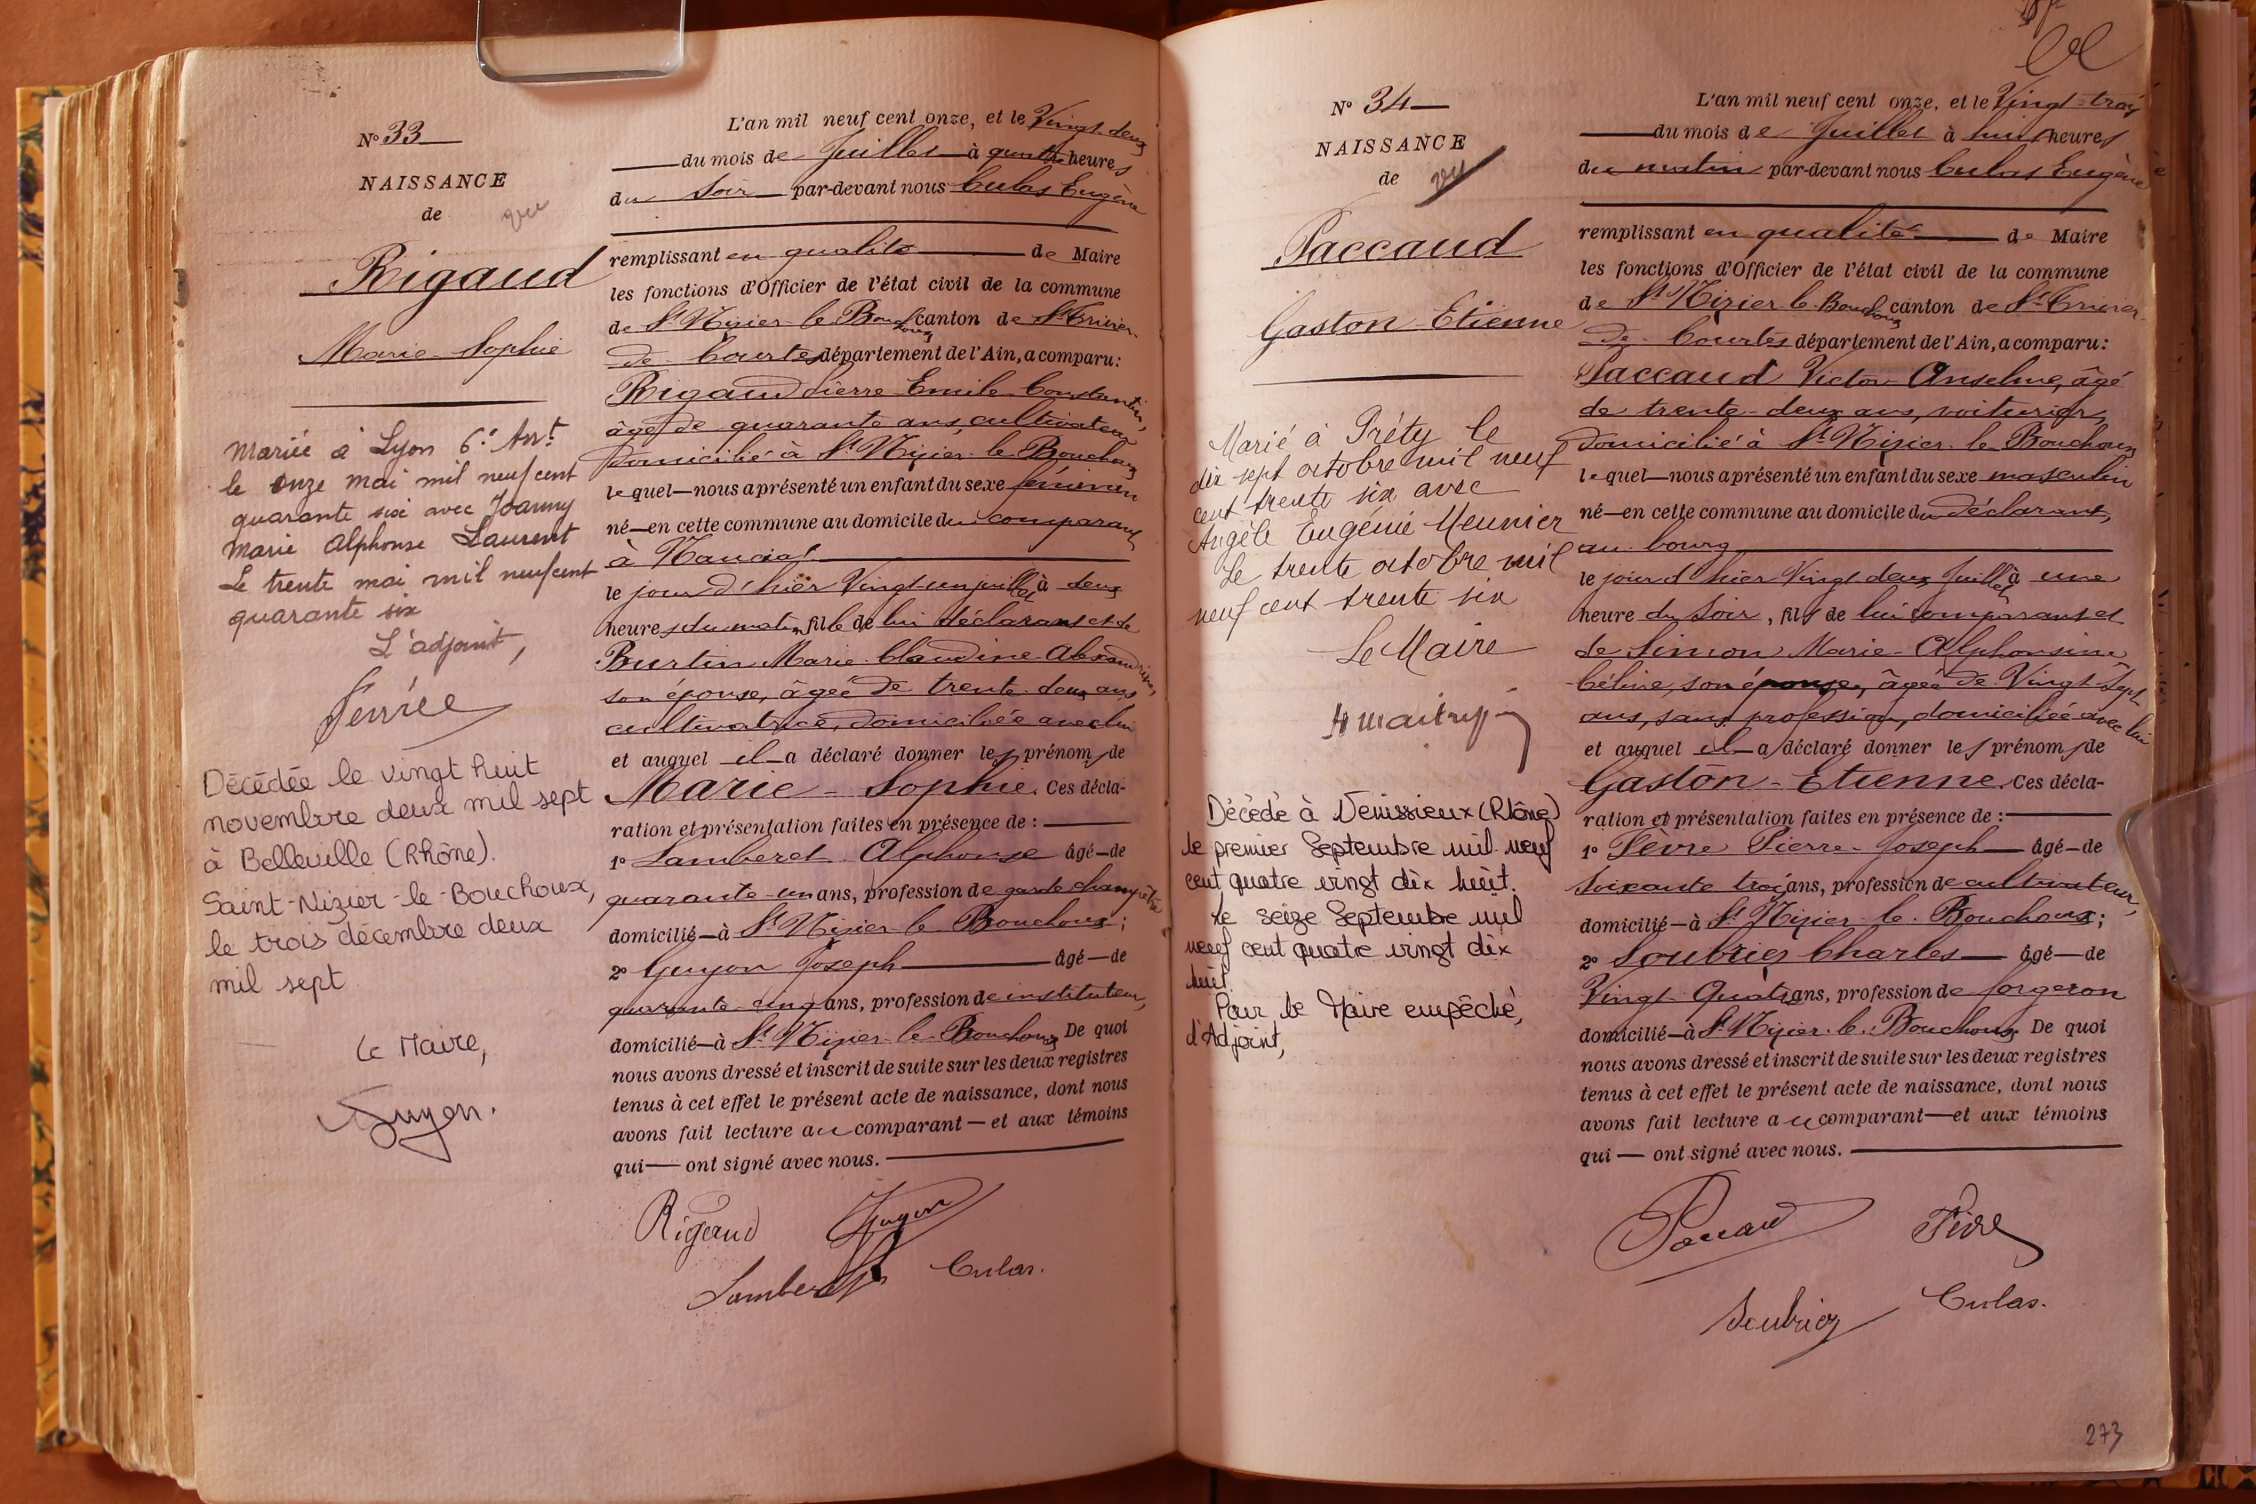 N° 33
NAISSANCE
de
vu
Rigaud
Marie Sophie
Mariée à Lyon 6e Arrt
le onze mai mil neuf cent
quarante six avec Joanny
Marie Alphonse Laurent
Le trente mai mil neuf cent
quarante six
L'adjoint,
Décédée le vingt huit
novembre deux mil sept
à Belleville (Rhône).
Saint-Nizier-le-Bouchoux,
le trois décembre deux
mil sept
Le Maire,
Guyon.
L'an mil neuf cent onze, et le Vingt deux
du mois de Juillet à quatre heures
du soir par-devant nous Culas Eugène
remplissant en qualité de Maire
les fonctions d'Officier de l'état civil de la commune
de St Nizier le Bouchoux canton de St Trivier
de Courtes département de l'Ain, a comparu:
Rigaud Pierre Emile Constantin,
âgé de quarante ans, cultivateur
domicilié à St Nizier le Bouchoux
lequel nous a présenté un enfant du sexe féminin
né en cette commune au domicile du comparant
à
le jour d'hier Vingt un juillet à deux
heures du matin, fille de lui déclarant et de
Burtin Marie Claudine Alexandrine,
son épouse, âgée de trente deux ans,
cultivatrice, domiciliée avec lui
et auquel il a déclaré donner les prénoms de
Marie - Sophie. Ces décla-
ration et présentation faites en présence de :
1° Lamberet Alphonse âgé de
quarante un ans, profession de garde champêtre
domicilié à St Nizier le Bouchoux ;
2° Guyon Joseph âgé de
quarante cinq ans, profession de instituteur,
domicilié à St Nizier le Bouchoux De quoi
nous avons dressé et inscrit de suite sur les deux registres
tenus à cet effet le présent acte de naissance, dont nous
avons fait lecture au comparant et aux témoins
qui ont signé avec nous.
Rigaud Guyon
Lamberet Culas.
N° 34
NAISSANCE
de
vu
Paccaud
Gaston Etienne
Marié à Préty le
dix-sept octobre mil neuf
cent trente six avec
Angèle Eugénie Meunier
Le trente octobre mil
neuf cent trente six
Le Maire
Décédé à Venissieux (Rhône)
le premier Septembre mil neuf
cent quatre vingt dix huit.
Le seize Septembre mil
neuf cent quatre vingt dix
huit
Pour le Maire empêché,
l'Adjoint,
L'an mil neuf cent onze, et le Vingt-trois
du mois de Juillet à huit heures
du matin par-devant nous Culas Eugène
remplissant en qualité de Maire
les fonctions d'Officier de l'état civil de la commune
de St Nizier le Bouchoux canton de St Trivier
de Courtes département de l'Ain, a comparu:
Paccaud Victor Anselme, âgé
de trente-deux ans, voiturier,
domicilié à St Nizier le Bouchoux
lequel nous a présenté un enfant du sexe masculin
né en cette commune au domicile du déclarant,
au bourg
le jour d'hier Vingt deux Juillet à une
heure du soir, fils de lui comparant et
de Simon Marie-Alphonsine
Céline, son épouse, âgée de Vingt Sept
ans, sans profession, domiciliée avec lui
et auquel il a déclaré donner les prénoms de
Gaston - Etienne. Ces décla-
ration et présentation faites en présence de :
1° Fèvre Pierre-Joseph âgé de
soixante trois ans, profession de cultivateur,
domicilié à St Nizier le Bouchoux ;
2° Soubrier Charles âgé de
Vingt-Quatre ans, profession de forgeron
domicilié à St Nizier le Bouchoux De quoi
nous avons dressé et inscrit de suite sur les deux registres
tenus à cet effet le présent acte de naissance, dont nous
avons fait lecture au comparant et aux témoins
qui ont signé avec nous.
Paccaud Fèvre
Soubrier Culas.
273